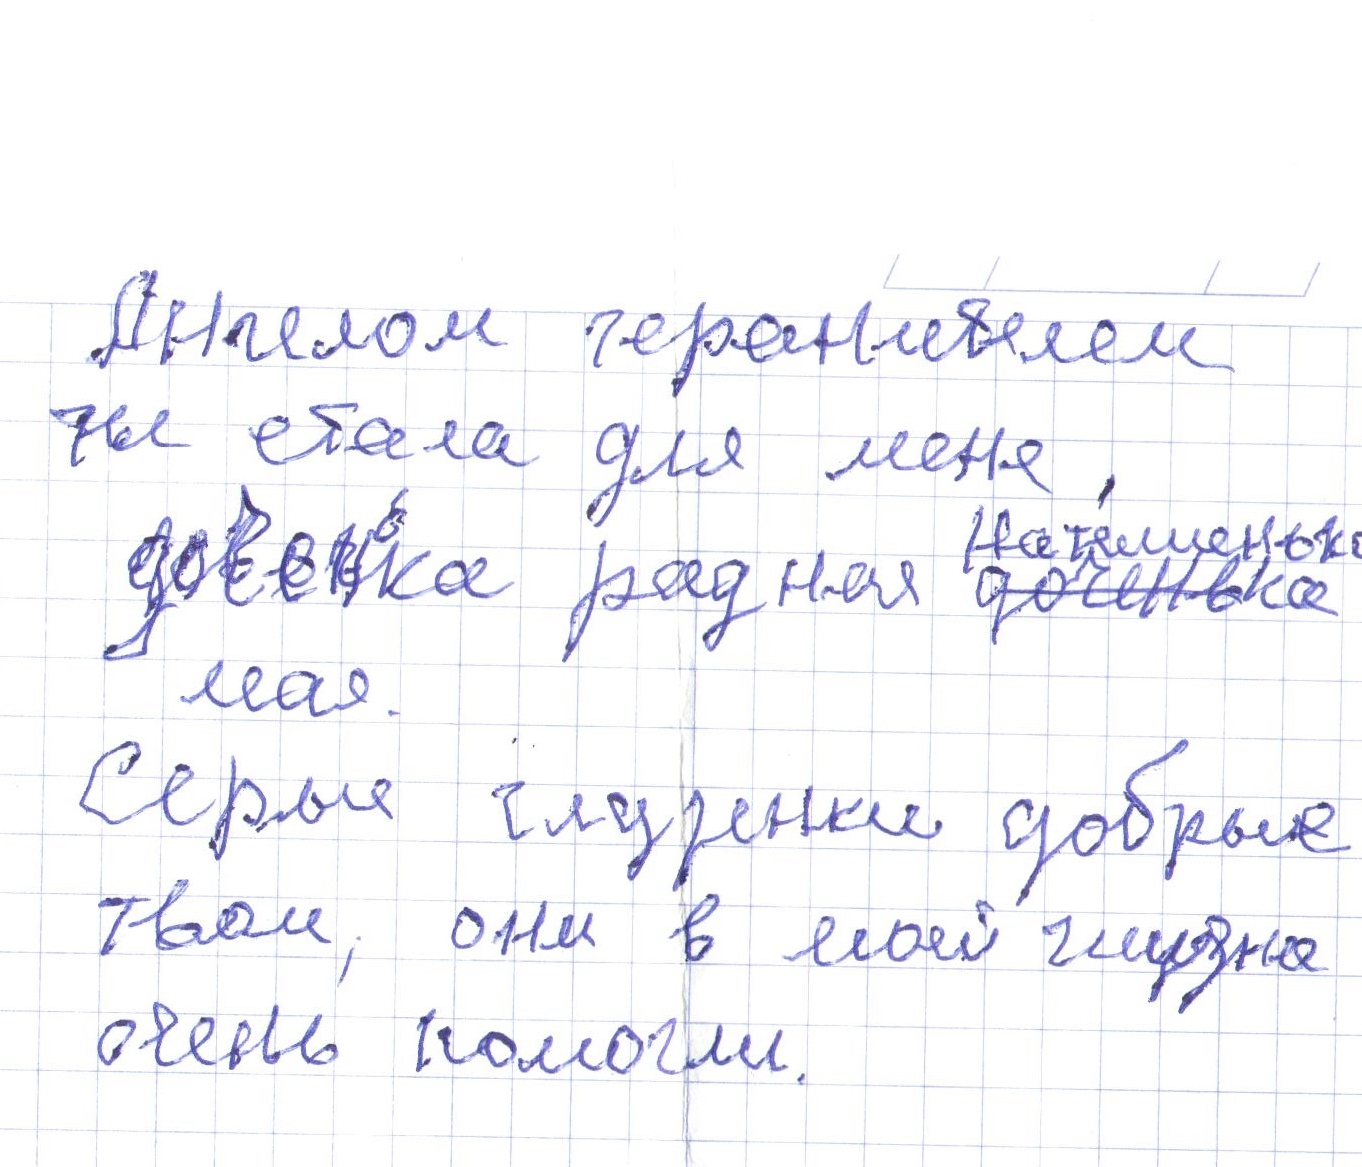 Ангелом геранителем
ты стала для меня,
доченька радная Наташенька
доченька
мая.
Серые глазенки добрые
твои, они в моей жизна
очень помогли.